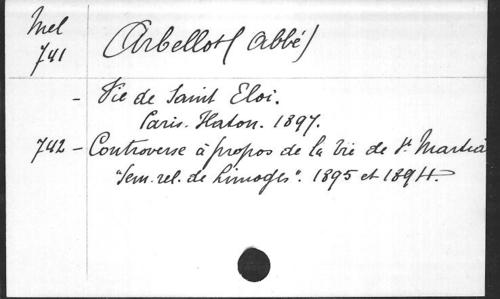 Mel
741 Arbellot (abbé)
- Vie de Saint Eloi.
Paris. Haton. 1897.
742 - Controverse à propos de la Vie de St Martial
"Sem. rel. de Limoges". 1895 et 1894.